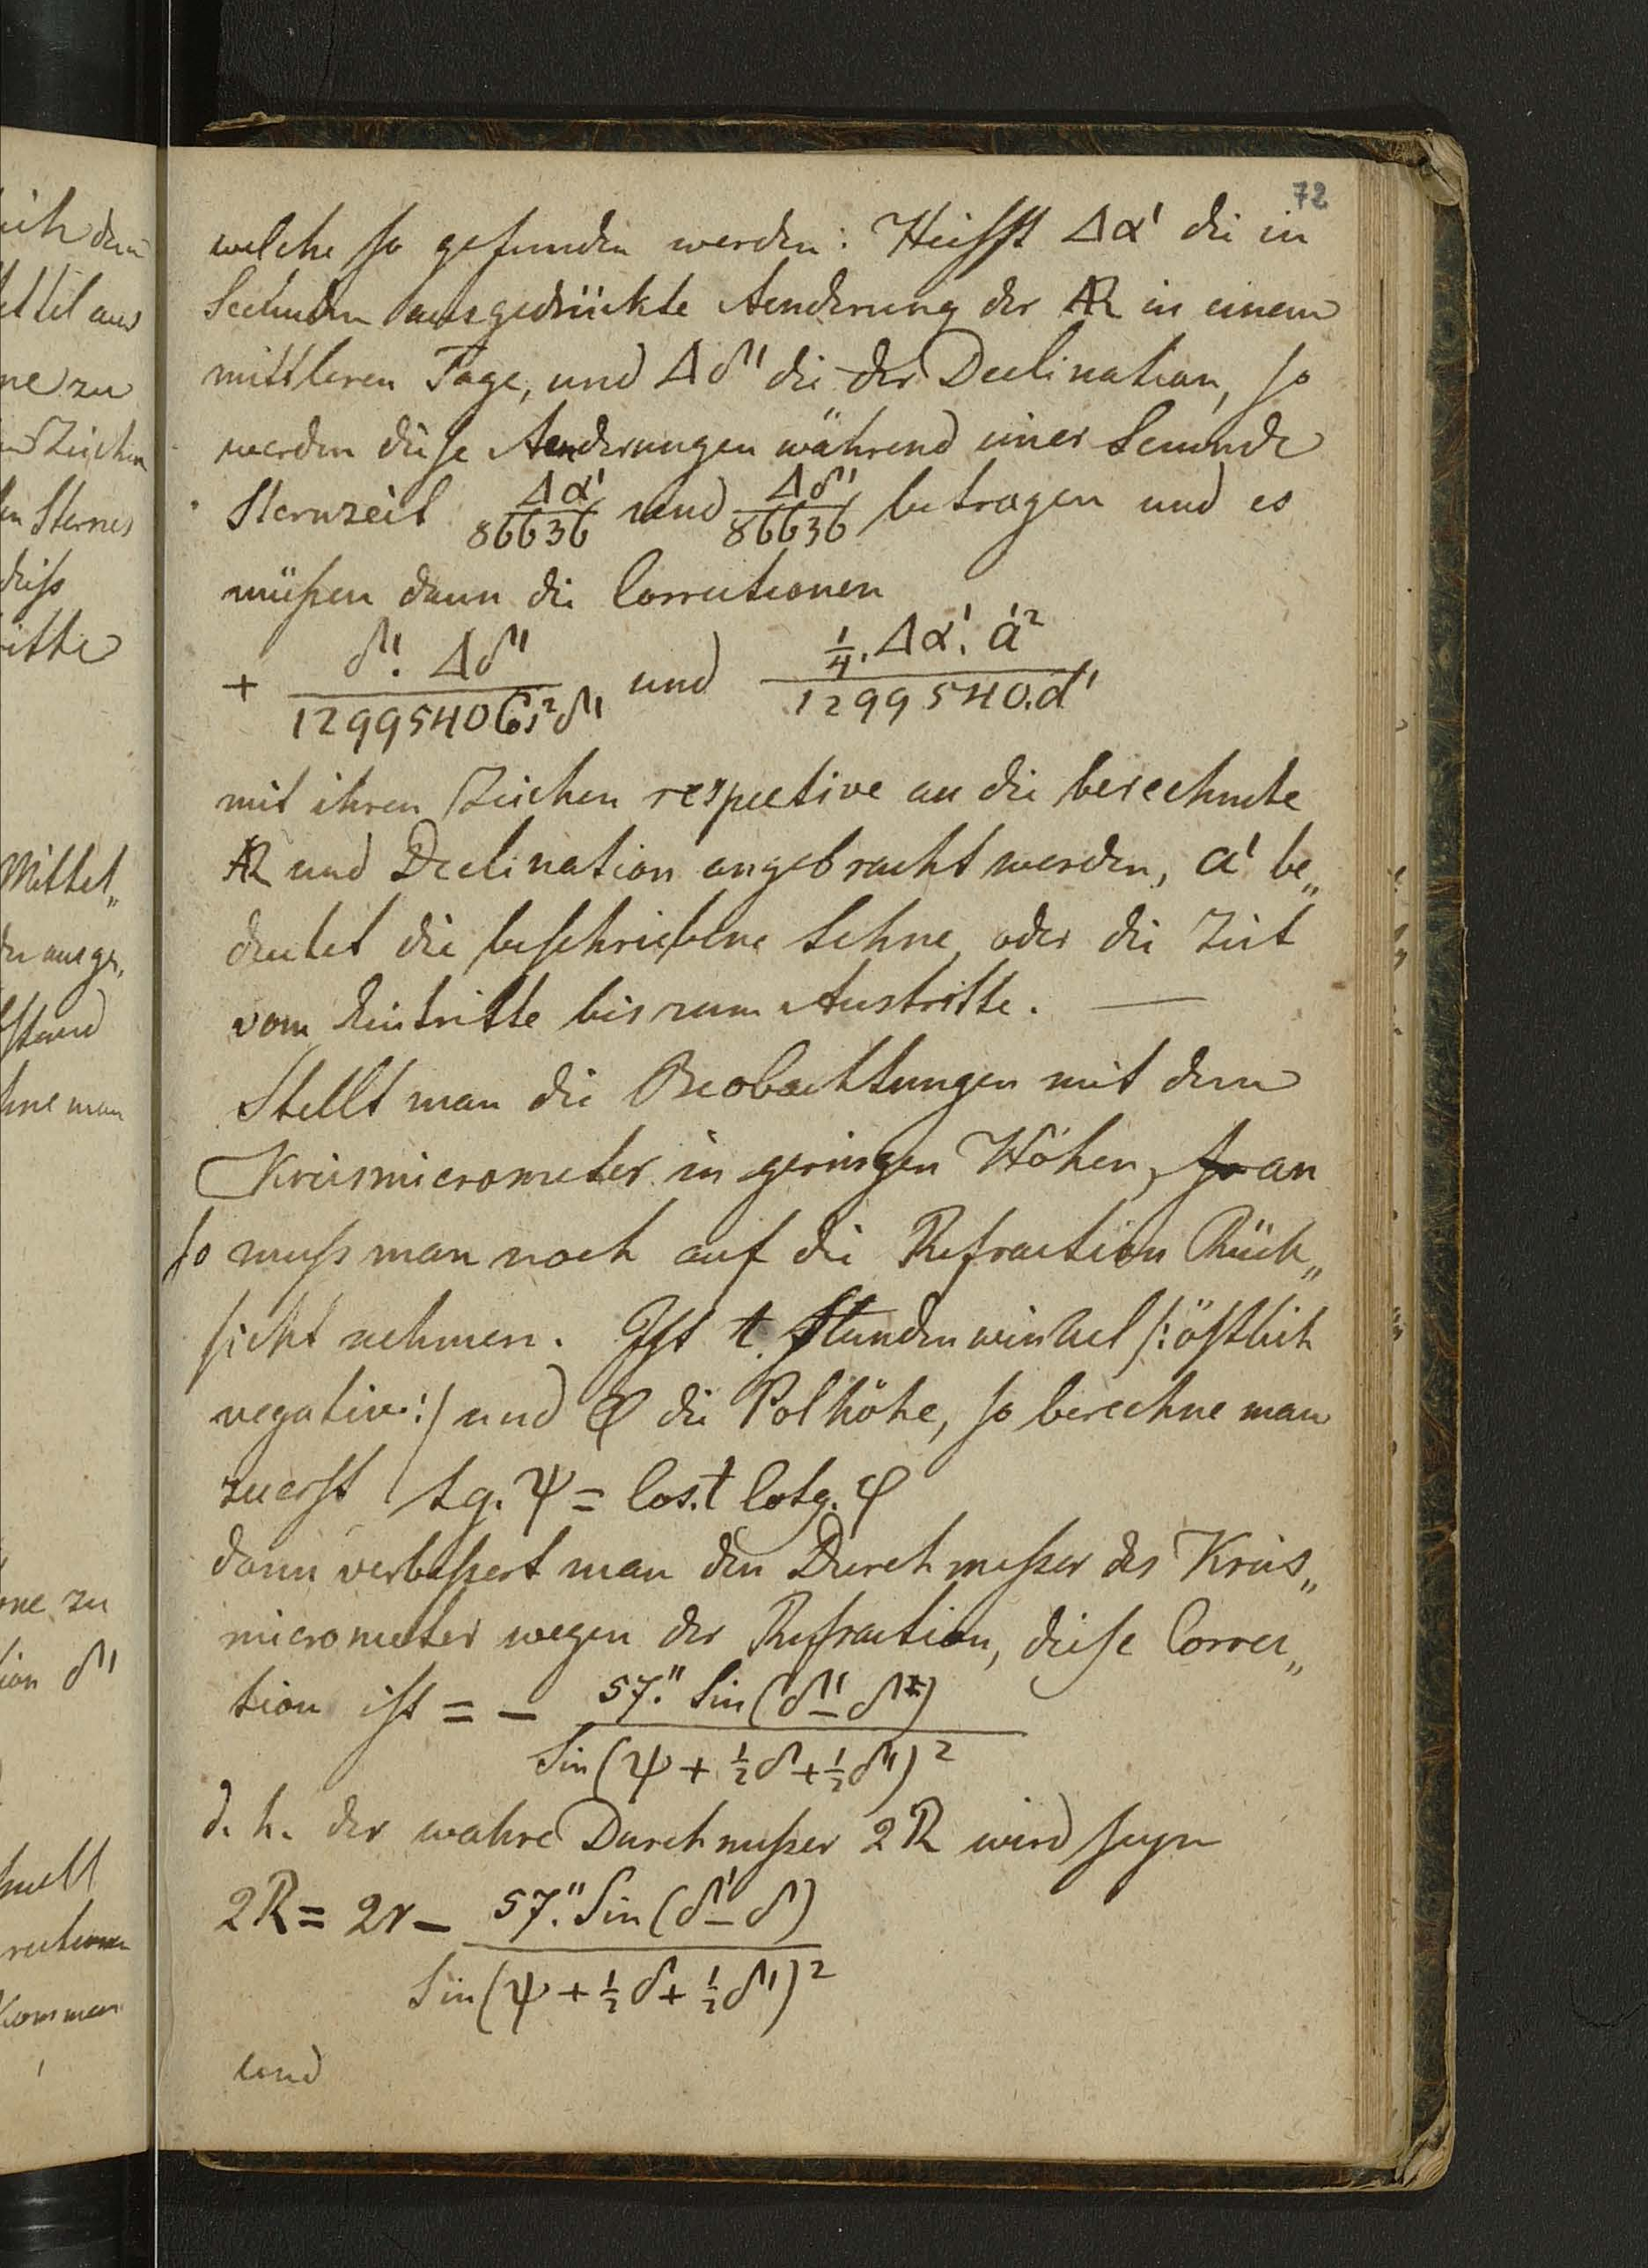 72
welche so gefunden werden: Heisst Δα' die in
Secunden ausgedrückte Aenderung der AR in einem
mittleren Tage, und Δδ' die der Declination, so
werden diese Aenderungen während einer Secunde
Sternzeit Δα'/86636 und Δδ'/86636 betragen und es
müßen dann die Correctionen
+ δ'. Δδ' / 1299540 Cos²δ' und ¼. Δα'. a'² / 1299540. d'
mit ihren Zeichen respective an die berechnete
AR und Declination angebracht werden, a' be„
deutet die beschriebene Sehne oder die Zeit
vom Eintritte bis zum Austritte. —
Stellt man die Beobachtungen mit dem
Kreismicrometer in geringen Höhen, so an
so muß man noch auf die Refraction Rück„
sicht nehmen. Ist t. Stundenwinkel /: östlich
negativ :/ und φ die Polhöhe, so berechne man
zuerst tg. ψ = Cos. t Cotg. φ
dann verbeßert man den Durchmeßer des Kreis„
micrometer wegen der Refraction, diese Correc„
tion ist = - 57." Sin (δ' - δ) / Sin (ψ + ½ δ + ½ δ')²
d. h. der wahre Durchmeßer 2R wird seyn
2R = 2r - 57." Sin (δ' - δ) / Sin (ψ + ½ δ + ½ δ')²
und